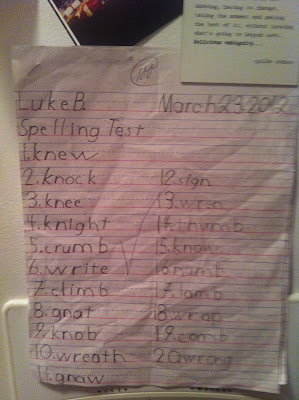 knowing, having to change,
taking the moment and making
the best of it, without knowing
what's going to happen next.
Delicious ambiguity...
-gilda radner
Luke B. March 23 2012
Spelling Test
1.knew
2.knock
3.knee
4.knight
5.crumb
6.write
7.climb
8.gnat
9.knob
10.wreath
11.gnaw
12.sign
13.wren
14.thumb
15.know
16.numb
17.lamb
18.wrap
19.comb
20.wrong